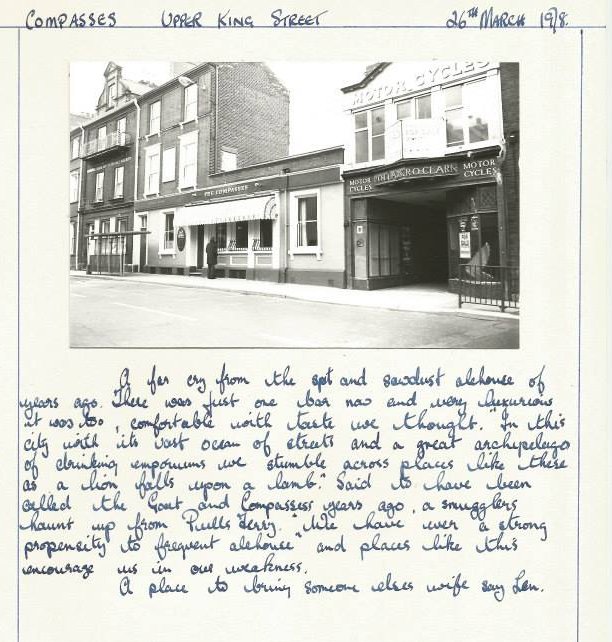 COMPASSES UPPER KING STREET 26TH MARCH 1978.
MOTOR CYCLES
THE COMPASSES
MOTOR CYCLES CLARK MOTOR CYCLES
A far cry from the spit and sawdust alehouse of
years ago. There was just one bar now and very luxurious
it was too, comfortable with taste we thought. "In this
city with its vast ocean of streets and a great archipelago
of drinking emporiums we stumble across places like these
as a lion falls upon a lamb." Said to have been
called the Goat and Compasses years ago, a smugglers
haunt up from Pulls Ferry. "We have ever a strong
propensity to frequent alehouse" and places like this
encourage us in our weakness.
A place to bring someone elses wife say Len.